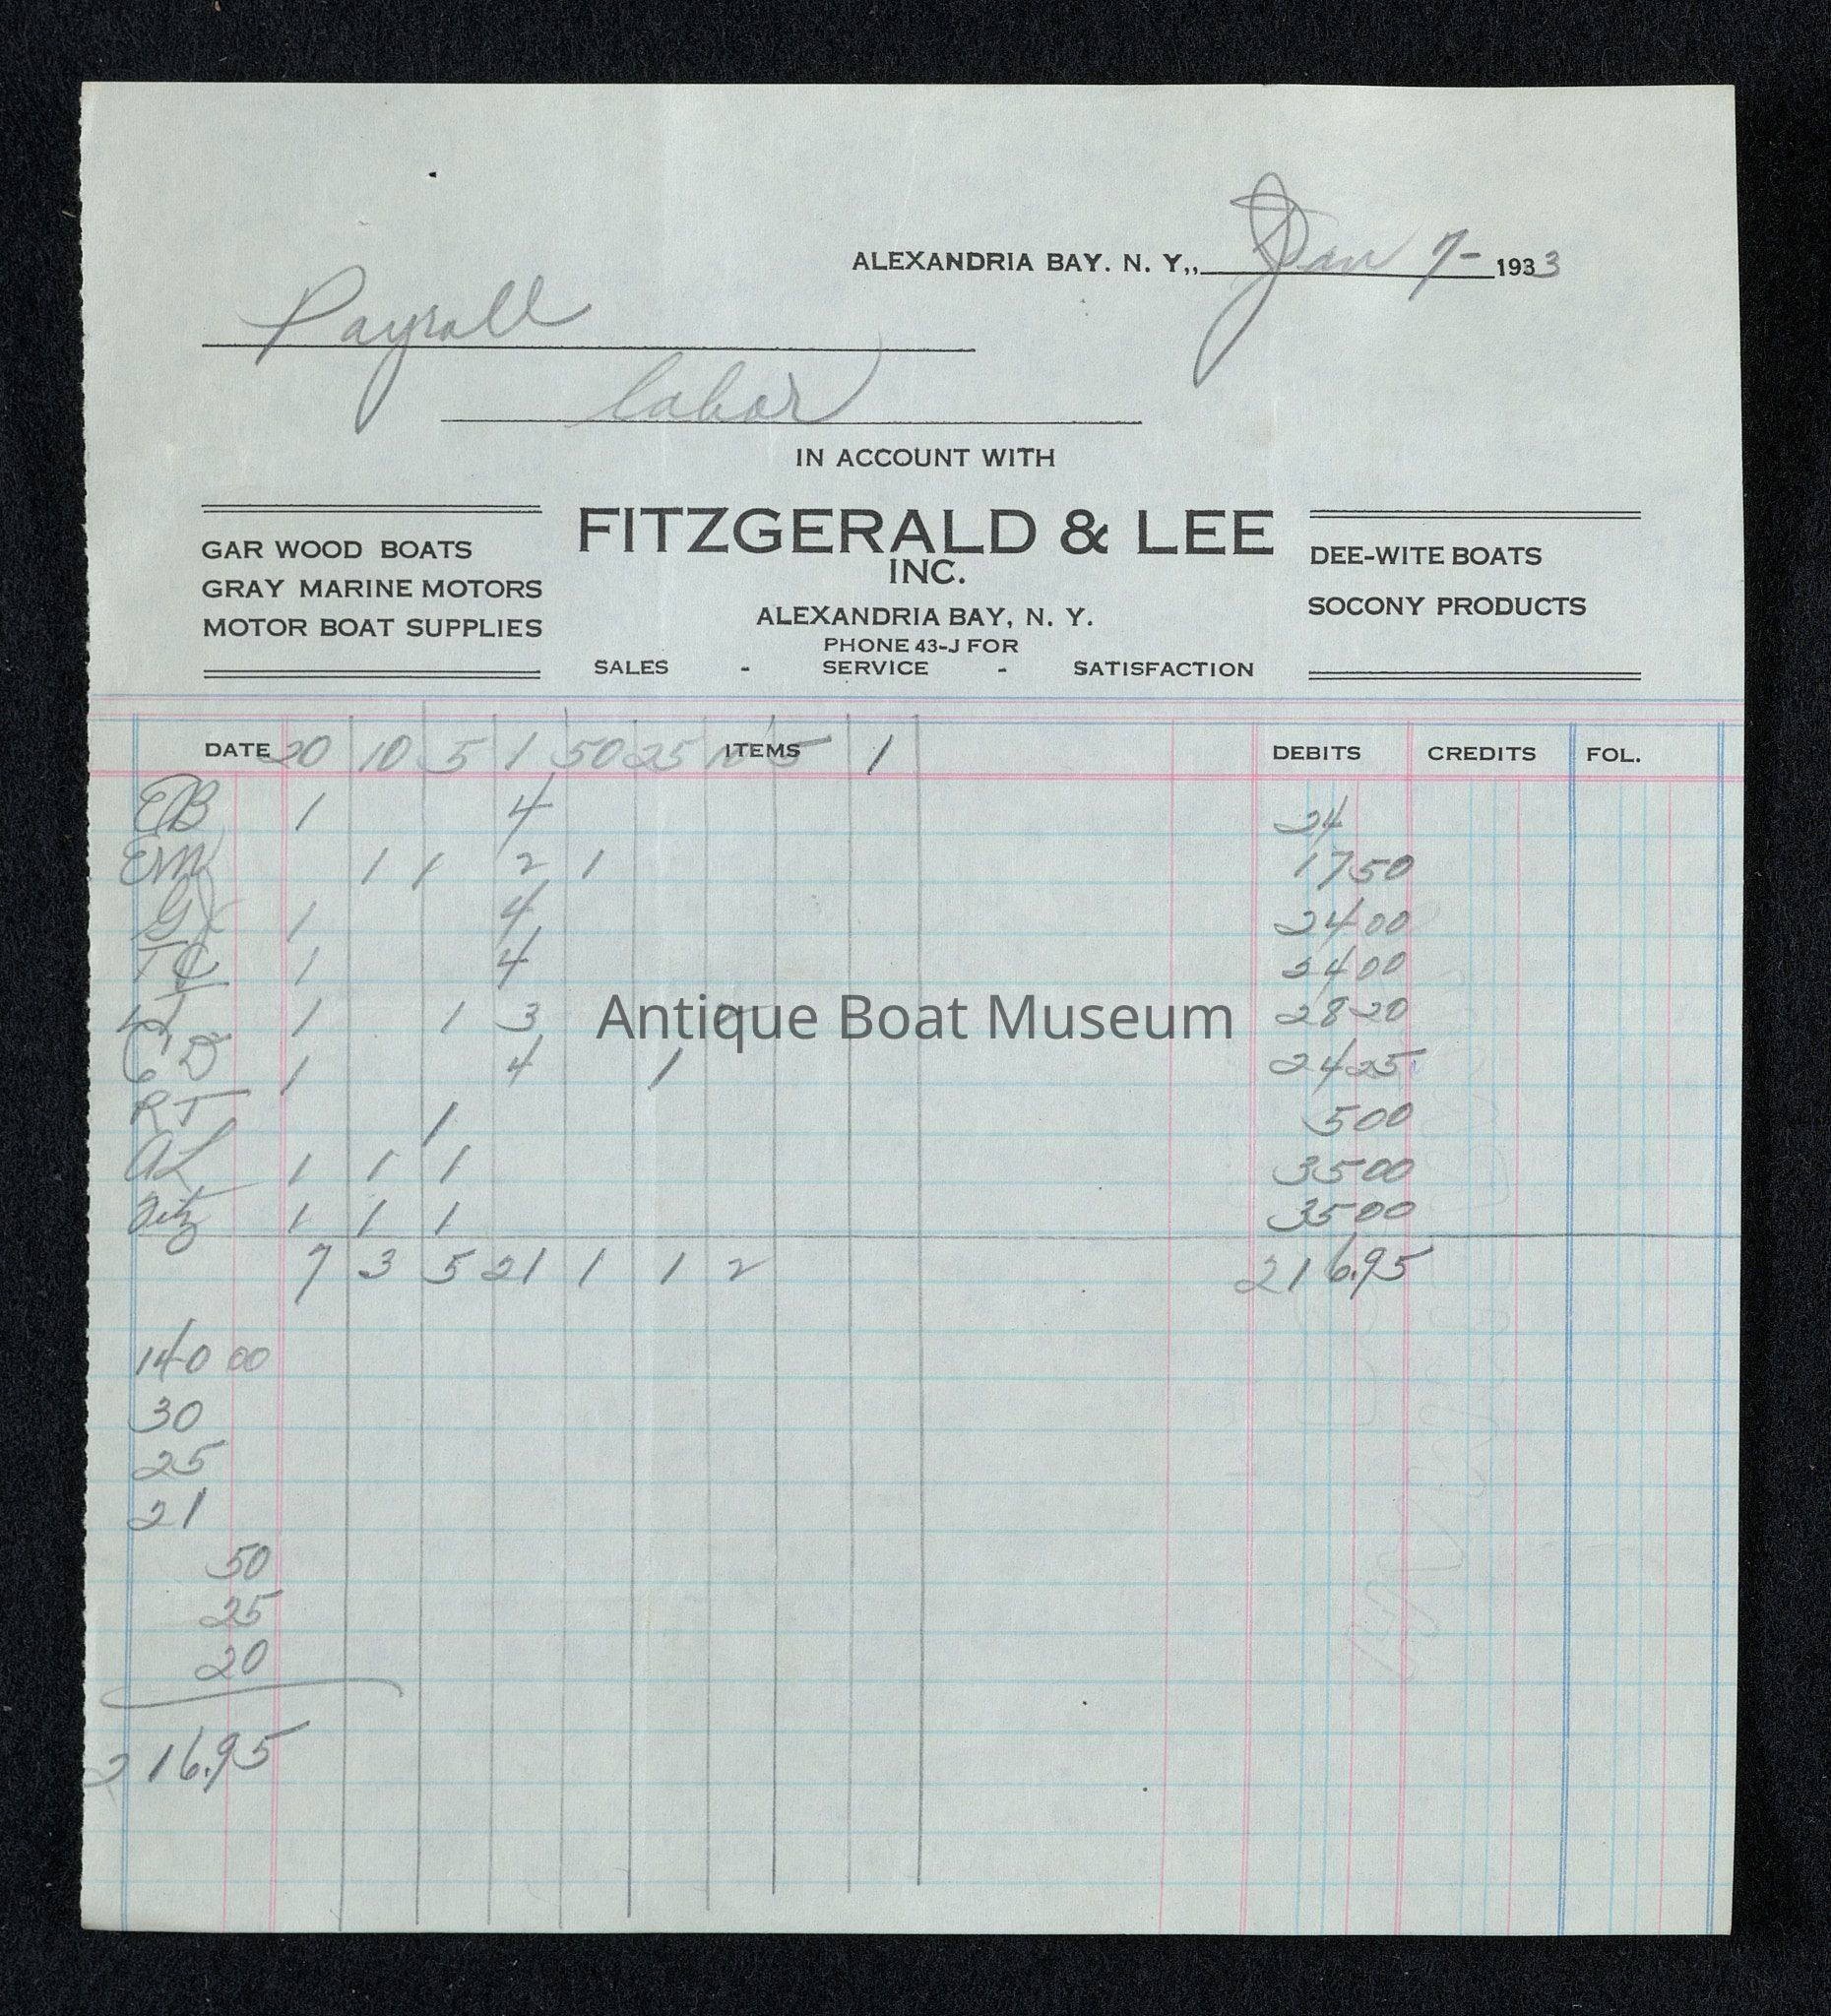 ALEXANDRIA BAY. N. Y,, Jan 7- 1933
Payroll
labor
IN ACCOUNT WITH
FITZGERALD & LEE
INC.
ALEXANDRIA BAY, N. Y.
PHONE 43-J FOR
SALES - SERVICE - SATISFACTION
GAR WOOD BOATS
GRAY MARINE MOTORS
MOTOR BOAT SUPPLIES
DEE-WITE BOATS
SOCONY PRODUCTS
DATE 20 10 5 1 50 25 10 ITEMS 5 1 DEBITS CREDITS FOL.
EB 1 4 24
EM 1 1 2 1 17 50
1 4 24 00
TC 1 4 24 00
1 1 3 2 28 20
CD 1 4 1 24 25
RT 1 5 00
AL 1 1 1 35 00
Fitz 1 1 1 35 00
7 3 5 21 1 1 2 216.95
140 00
30
25
21
50
25
20
216.95
Antique Boat Museum